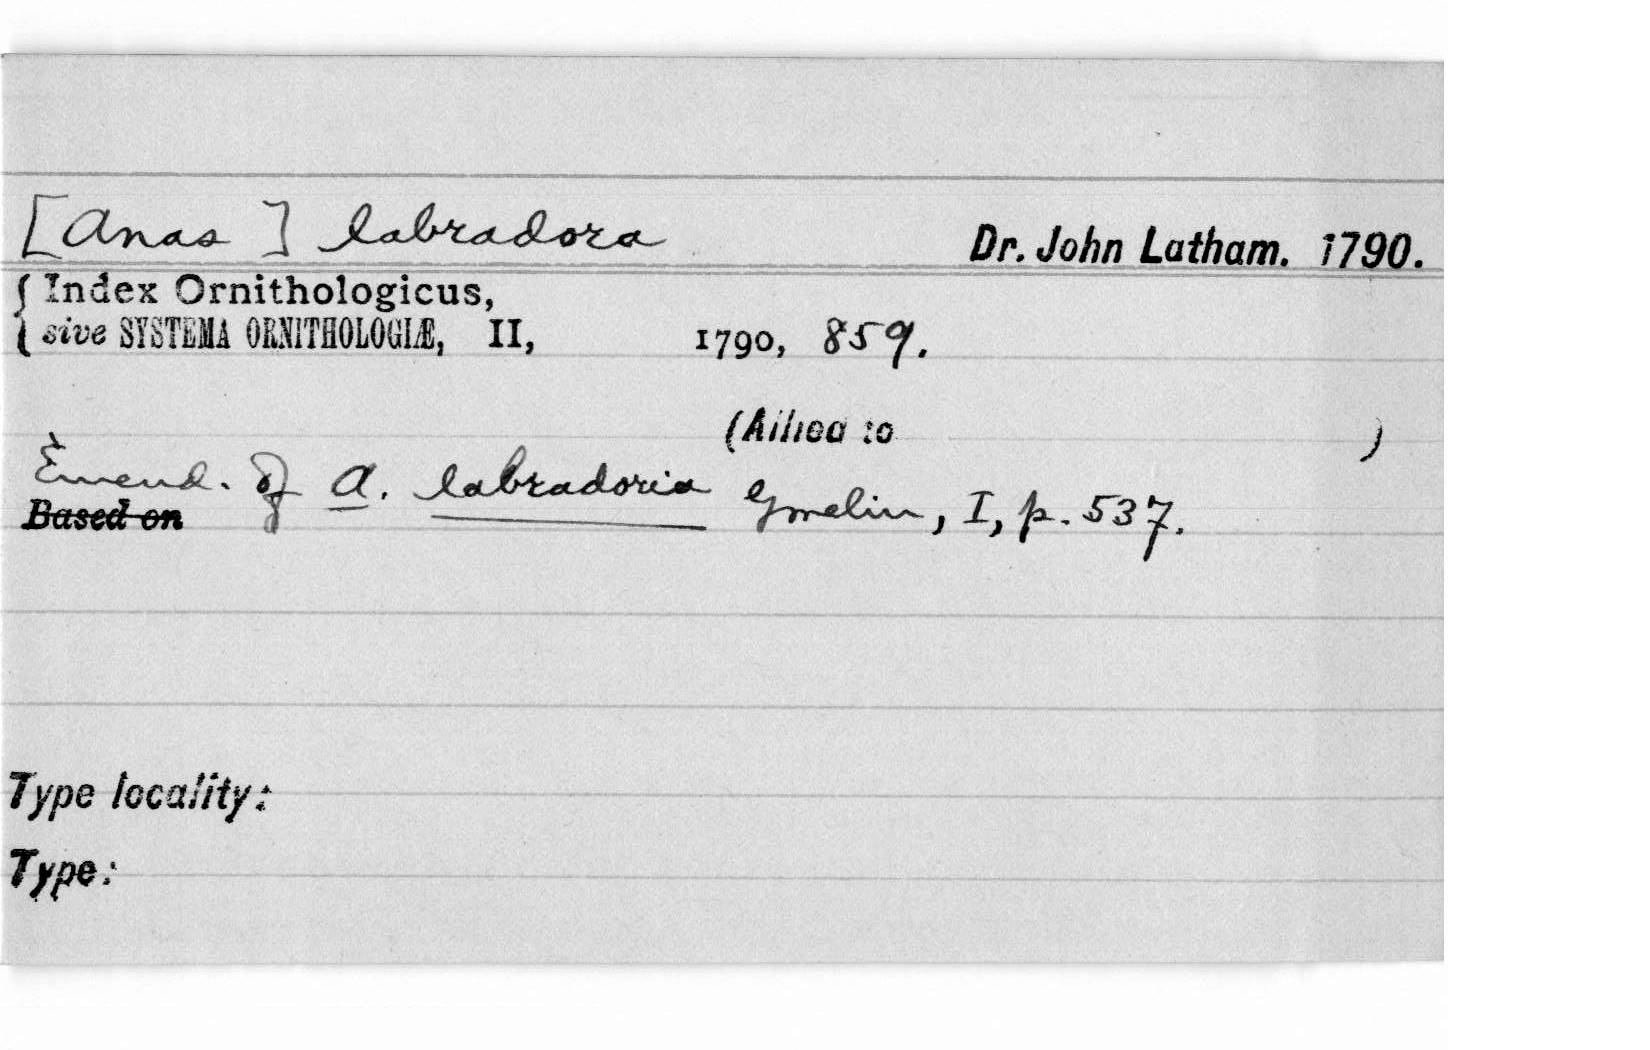 [Anas] labradora Dr. John Latham. 1790.
Index Ornithologicus,
sive SYSTEMA ORNITHOLOGIÆ, II, 1790, 859.
(Allied to )
Emend. of A. labradoria Gmelin, I, p. 537.
Based on
Type locality:
Type: